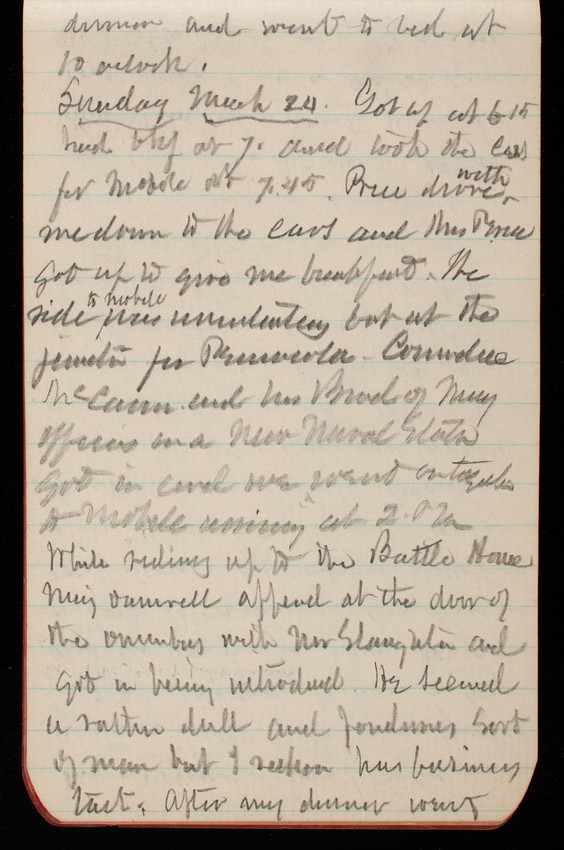 dinner and went to bed at
10 oclock.
Sunday March 24. Got up at 6 15
had bkf at 7. and took the cars
for Mobile at 7.45. drove with
me down to the cars and Mrs
got up to give me breakfast. The
ride to Mobile was but at the
for Pensacola - Commodore
McCann and his Board of Navy
officers on a New Naval Station
Got in and we went on together
to Mobile arriving at 2.
While riding up to the Battle House
appeared at the door of
the omnibus with Mr Slaughter and
got in being introduced. He seemed
a rather dull and sort
of man but I reckon has business
tact. After my dinner went